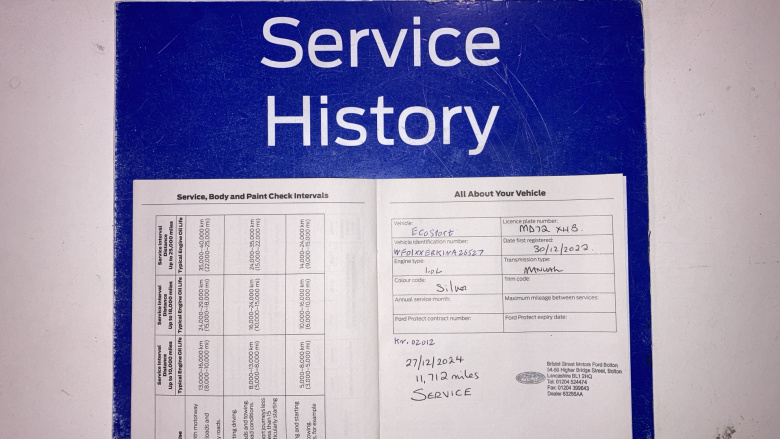 Service
History
Service, Body and Paint Check Intervals
Service Interval
Distance
Up to 25,000 miles
Typical Engine Oil Life
35,000–40,000 km
(22,000–25,000 mi)
24,000–35,000 km
(15,000–22,000 mi)
14,000–24,000 km
(9,000–15,000 mi)
Service Interval
Distance
Up to 18,000 miles
Typical Engine Oil Life
24,000–29,000 km
(15,000–18,000 mi)
16,000–24,000 km
(10,000–15,000 mi)
10,000–16,000 km
(6,000–10,000 mi)
Service Interval
Distance
Up to 10,000 miles
Typical Engine Oil Life
13,000–16,000 km
(8,000–10,000 mi)
8,000–13,000 km
(5,000–8,000 mi)
5,000–8,000 km
(3,000–5,000 mi)
th motorway
loads and
y roads.
rting driving.
ads and towing.
ad conditions.
ort journeys less
ess than 15
ticularly starting
ng and starting
owing.
s, for example
All About Your Vehicle
Vehicle:
Ecosport
Licence plate number:
MD72 XHS
Vehicle identification number:
Date first registered:
30/12/2022
Engine type:
1.0L
Transmission type:
MANUAL
Colour code:
Silver
Trim code:
Annual service month:
Maximum mileage between services:
Ford Protect contract number:
Ford Protect expiry date:
27/12/2024
11,712 miles
SERVICE
Bristol Street Motors Ford Bolton
54-60 Higher Bridge Street, Bolton
Lancashire BL1 2HQ
Tel: 01204 524474
Fax: 01204 399643
Dealer 63268AA